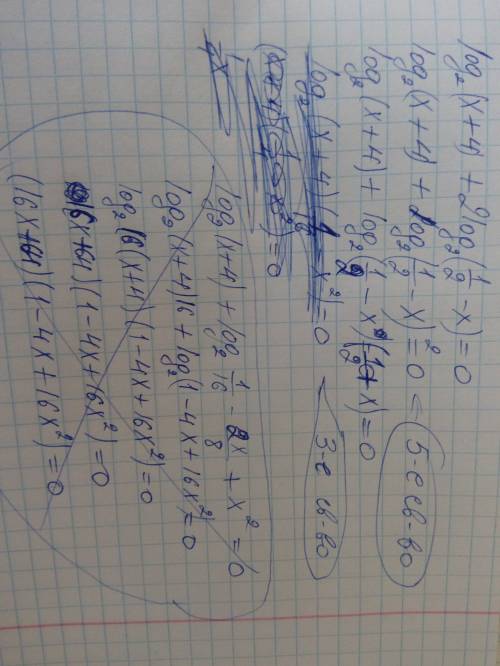 log₂(x+4) + 2log₂(1/2 - x) = 0
log₂(x+4) + log₂(1/2 - x)² = 0 <= 5-е св-во
log₂(x+4) + log₂(1/2 - x)(1/2 - x) = 0
3-е св-во
log₂(x+4) + log₂ 1/16 - x/8 + x² = 0
log₂(x+4)16 + log₂(1-4x+16x²) = 0
log₂16(x+4)(1-4x+16x²) = 0
(16x+64)(1-4x+16x²) = 0
(16x+64)(1-4x+16x²) = 0